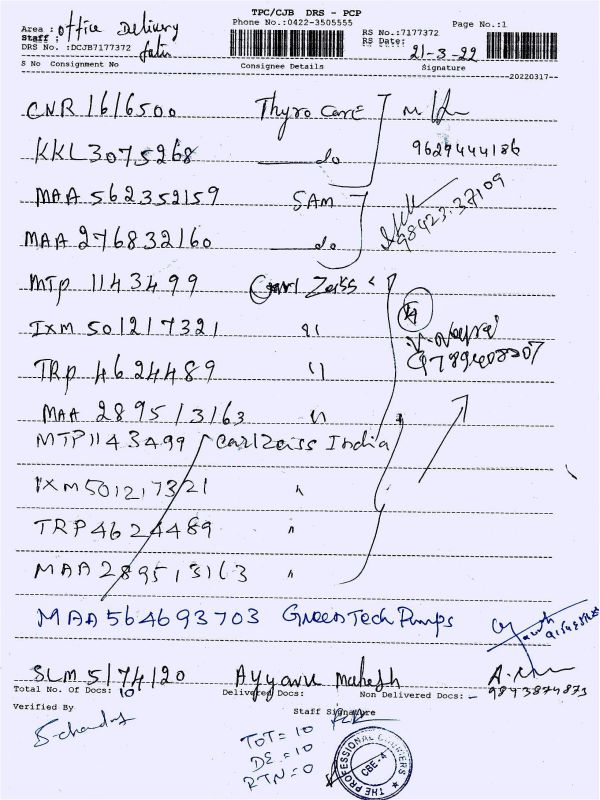 TPC/CJB DRS - PCP
Phone No.:0422-3505555
Page No.:1
Area : office Delivery
Staff :
DRS No. :DCJB7177372
RS No.:7177372
RS Date: 21-3-22
S No Consignment No Consignee Details Signature
20220317
CNR 1616500 Thyro Care
9627444186
KKL3075268 do
MAA 562352159 SAM
98423-37109
MAA 276832160 do
MTP 1143499 Carl Zeiss
IXM 501217321 "
TRP 4624489 "
MAA 289513163 "
MTP1143499 Carl Zeiss India
IXM501217321 "
TRP4624489 "
MAA289513163 "
MAA564693703 GreenTech Pumps
SLM 5174120 Ayyanu Mahesh
9843874873
Total No. Of Docs: 10 Delivered Docs: Non Delivered Docs: -
Verified By Staff Signature
TOT = 10
DE = 10
RTN = 0
THE PROFESSIONAL COURIERS
CBE-4